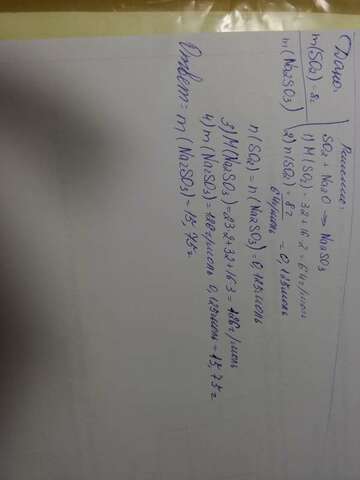 Дано:
m(SO₂)=8г
m(Na₂SO₃)
Решение:
SO₂ + Na₂O → Na₂SO₃
1) M(SO₂) = 32+16·2=64г/моль
2) n(SO₂) = 8г / 64г/моль = 0,125моль
n(SO₂) = n(Na₂SO₃)=0,125моль
3) M(Na₂SO₃)=23·2+32+16·3=126г/моль
4) m(Na₂SO₃)=126г/моль · 0,125моль=15,75г
Ответ: m(Na₂SO₃)=15,75г.